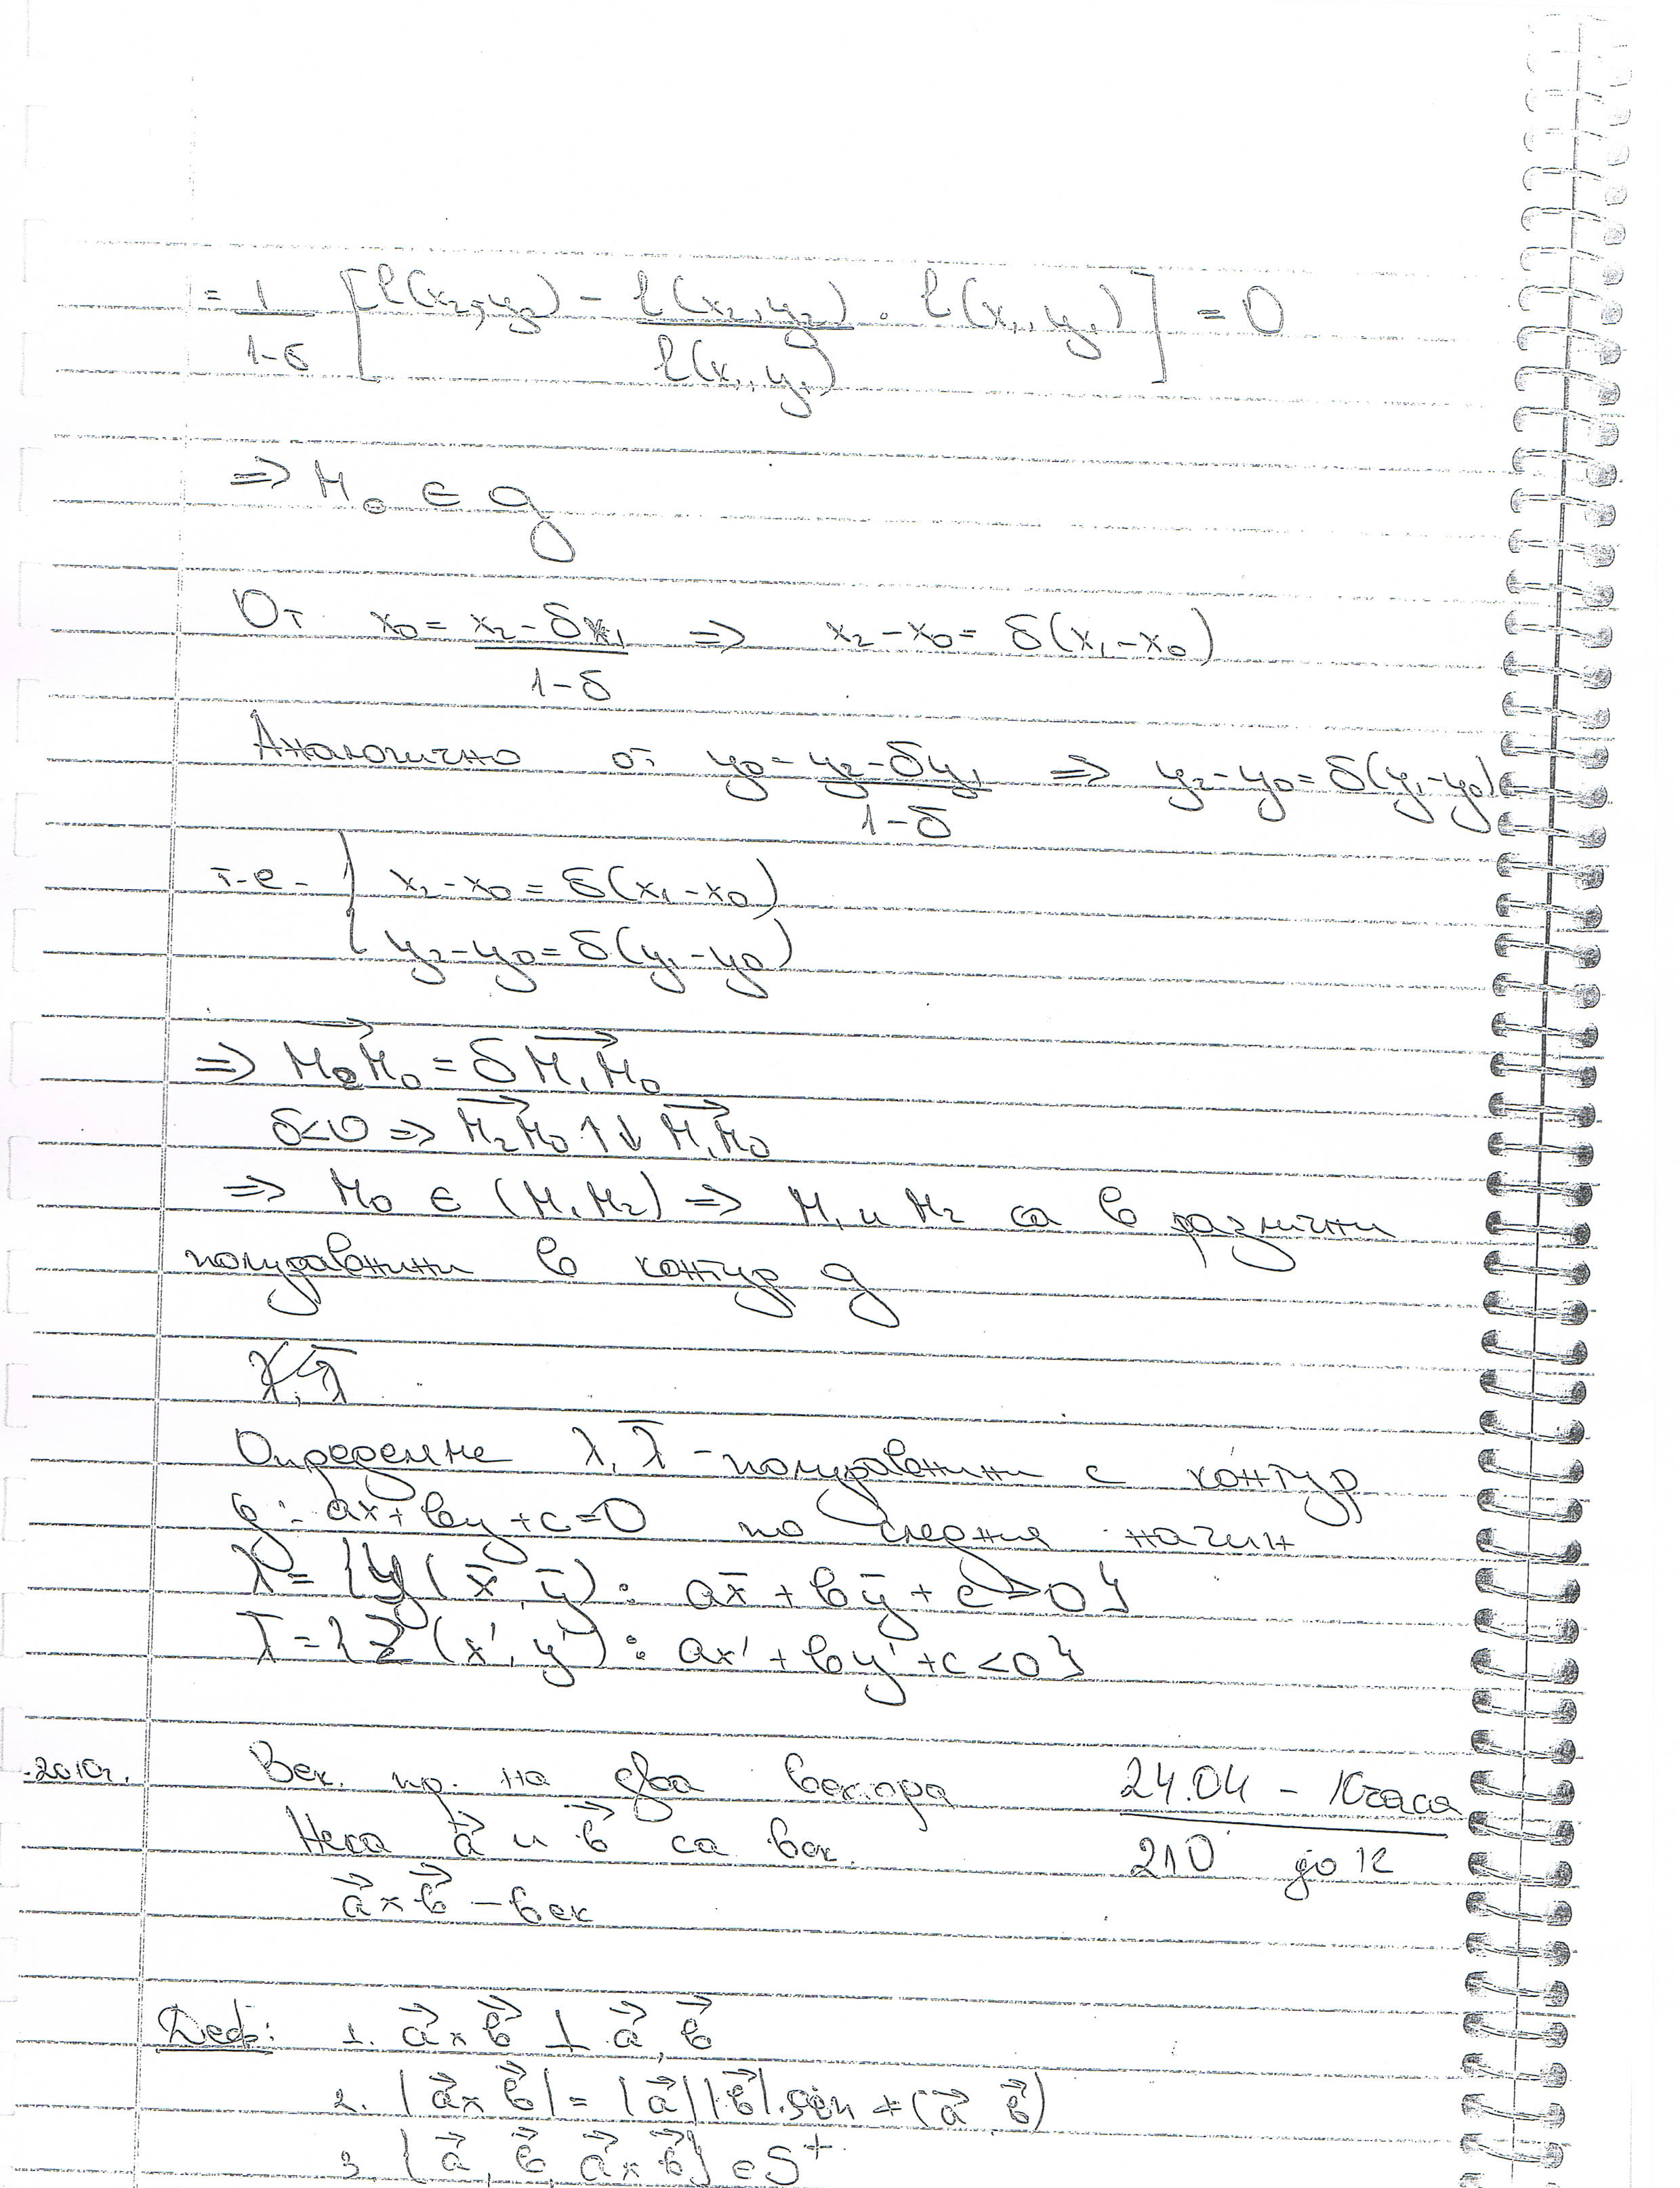 = 1/(1-δ) [ l(x₂, y₂) - l(x₂, y₂)/l(x₁, y₁) . l(x₁, y₁) ] = 0
=> M₀ ∈ g
От x₀ = (x₂ - δx₁)/(1-δ) => x₂ - x₀ = δ(x₁ - x₀)
Аналогично от y₀ = (y₂ - δy₁)/(1-δ) => y₂ - y₀ = δ(y₁ - y₀)
т.е. { x₂ - x₀ = δ(x₁ - x₀)
y₂ - y₀ = δ(y₁ - y₀)
=> M₂M₀→ = δ M₁M₀→
δ<0 => M₂M₀→ ↑↓ M₁M₀→
=> M₀ ∈ (M₁M₂) => M₁ и M₂ са в различни
полуравнини в контур g
λ, λ̅
Определяме λ, λ̅ - полуравнини с контур
g: ax + by + c = 0 по следния начин
λ = {Y(x̅, y̅) : ax̅ + by̅ + c > 0}
λ̅ = {Z(x', y') : ax' + by' + c < 0}
.2010г. Век. пр. на два вектора 24.04 - 10часа
Нека a→ и b→ са век. 210 до 12
a→ × b→ - век
Деф: 1. a→ × b→ ⊥ a→, b→
2. |a→ × b→| = |a→||b→|.sin ∢(a→ b→)
3. {a→, b→, a→ × b→} ∈ S⁺